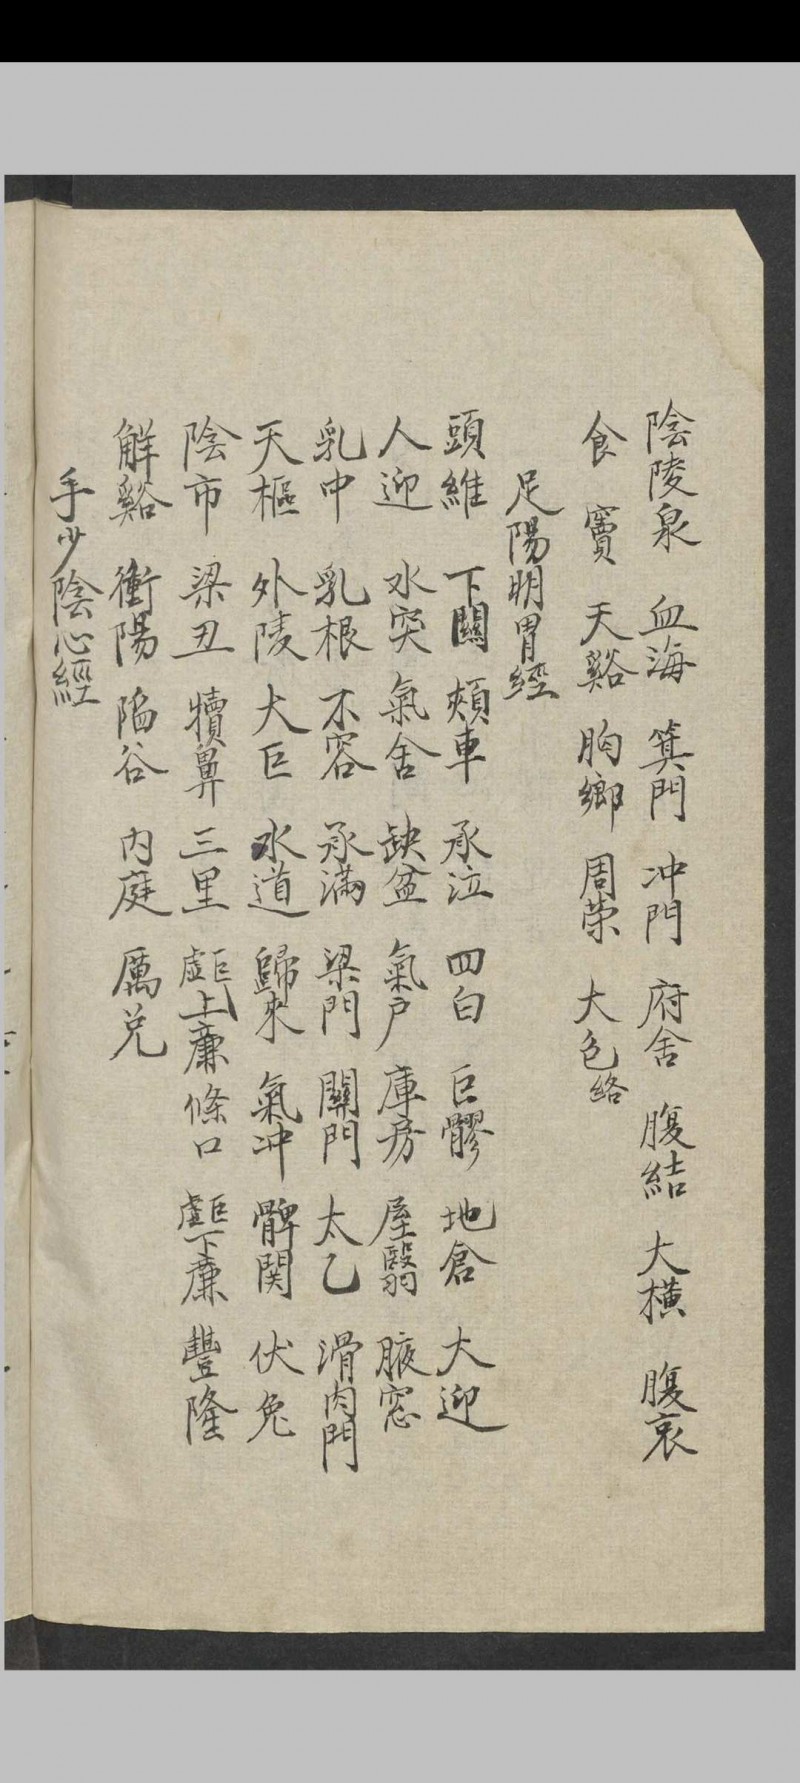 陰陵泉 血海 箕門 冲門 府舍 腹結 大橫 腹哀
食竇 天谿 胸鄉 周荣 大包絡
足陽明胃經
頭維 下關 頰車 承泣 四白 巨髎 地倉 大迎
人迎 水突 氣舍 缺盆 氣户 庫房 屋翳 腋窓
乳中 乳根 不容 承滿 梁門 關門 太乙 滑肉門
天樞 外陵 大巨 水道 歸來 氣冲 髀関 伏兔
陰市 梁丑 犢鼻 三里 巨虛上廉 條口 巨虛下廉 豐隆
解谿 衝陽 陷谷 内庭 厲兑
手少陰心經